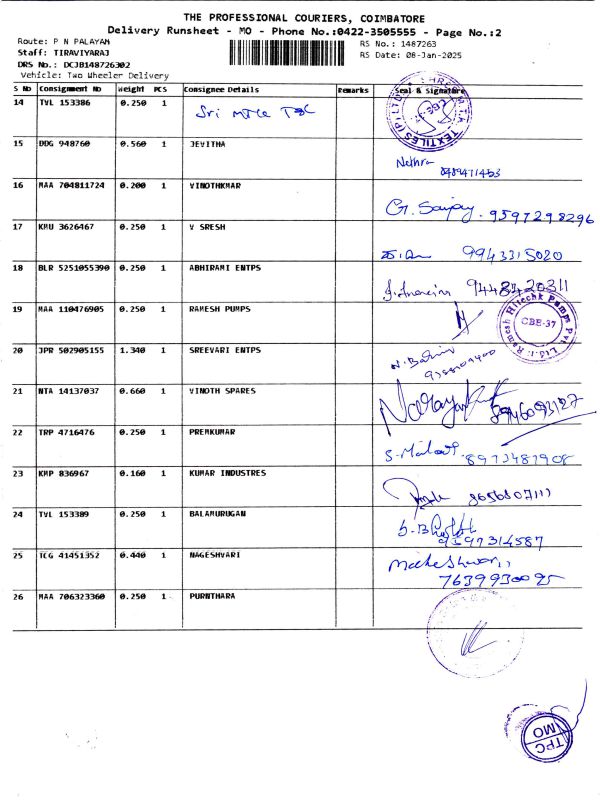 THE PROFESSIONAL COURIERS, COIMBATORE
Delivery Runsheet - MO - Phone No.:0422-3505555 - Page No.:2
Route: P N PALAYAM
RS No.: 1487263
Staff: TIRAVIYARAJ
RS Date: 08-Jan-2025
DRS No.: DCJB148726302
Vehicle: Two Wheeler Delivery
S No Consignment No Weight PCS Consignee Details Remarks Seal & Signature
14 TVL 153386 0.250 1 Sri
TEXTILES (P) LTD
15 DDG 948760 0.560 1 JEVITHA
Nethra
16 MAA 704811724 0.200 1 VINOTHKMAR
G. Sanjay. 9597298296
17 KMU 3626467 0.250 1 V SRESH
9943315020
18 BLR 5251055390 0.250 1 ABHIRAMI ENTPS
9448420311
19 MAA 110476905 0.250 1 RAMESH PUMPS
Ramesh Hitechk Pumps Pvt. Ltd.
CBE-37
20 JPR 502905155 1.340 1 SREEVARI ENTPS
21 NTA 14137037 0.660 1 VINOTH SPARES
8946093127
22 TRP 4716476 0.250 1 PREMKUMAR
8973487908
23 KMP 836967 0.160 1 KUMAR INDUSTRES
24 TVL 153389 0.250 1 BALAMURUGAN
9597314587
25 TCG 41451352 0.440 1 NAGESHVARI
7639930095
26 MAA 706323360 0.250 1 PURNTHARA
TPC
MO